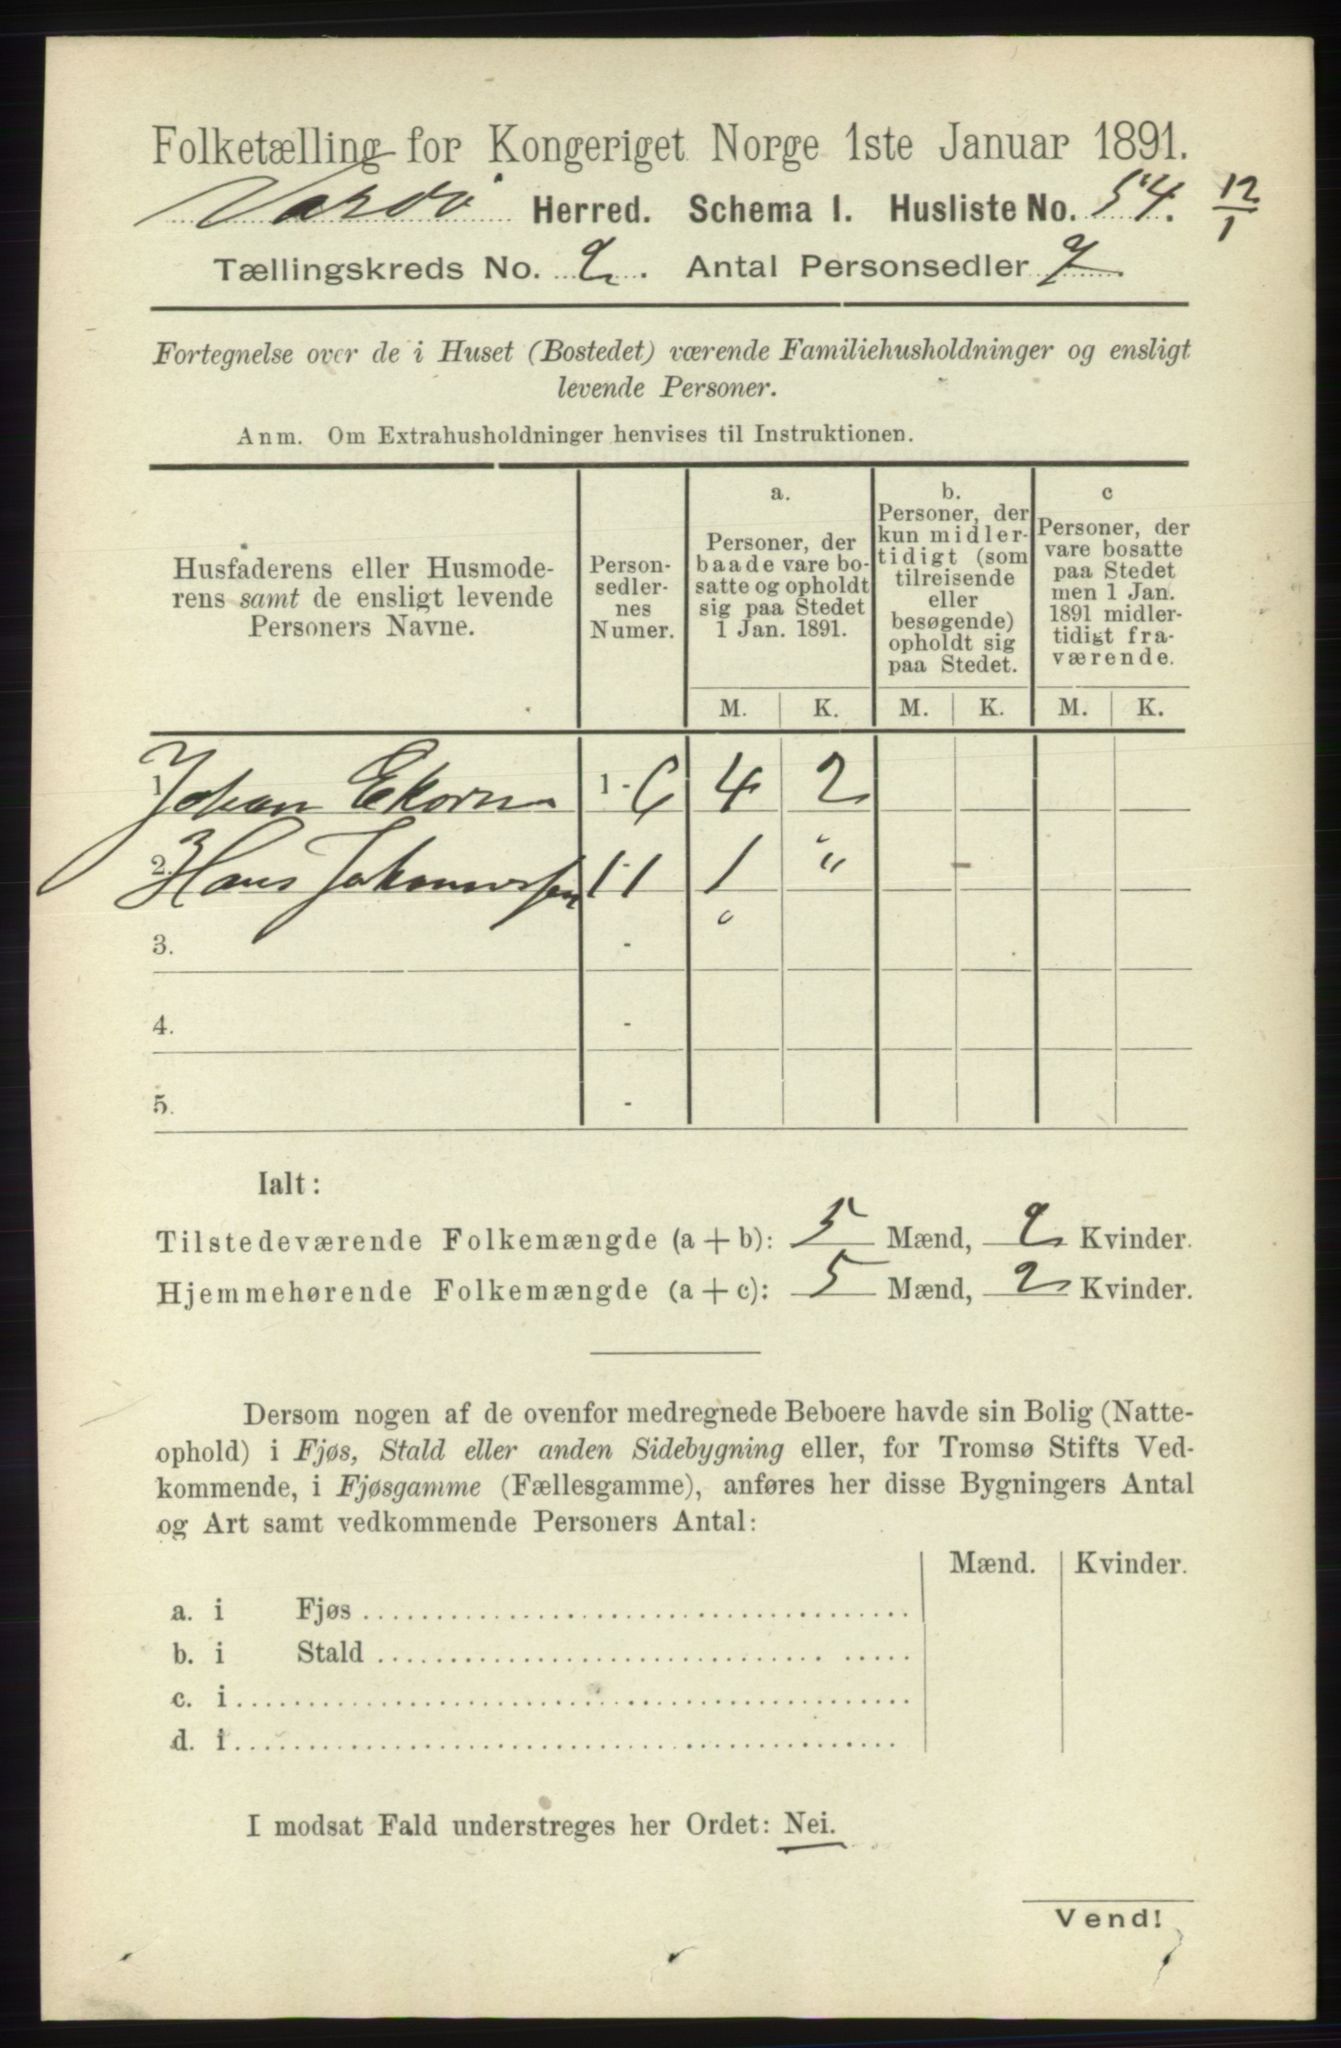 Folketælling for Kongeriget Norge 1ste Januar 1891.
Vardø Herred. Schema I. Husliste No. 54. 12/1
Tællingskreds No. 2. Antal Personsedler 7
Fortegnelse over de i Huset (Bostedet) værende Familiehusholdninger og ensligt
levende Personer.
Anm. Om Extrahusholdninger henvises til Instruktionen.
Husfaderens eller Husmode-
rens samt de ensligt levende
Personers Navne.
Person-
sedler-
nes
Numer.
a.
Personer, der
baade vare bo-
satte og opholdt
sig paa Stedet
1 Jan. 1891.
b.
Personer, der
kun midler-
tidigt (som
tilreisende
eller
besøgende)
opholdt sig
paa Stedet.
c
Personer, der
vare bosatte
paa Stedet
men 1 Jan.
1891 midler-
tidigt fra-
værende.
M. K. M. K. M. K.
1. Johan Ekorn 1 - 6 4 2
2. Hans Johannessen 1 - 1 1 "
3. -
4. -
5. -
Ialt:
Tilstedeværende Folkemængde (a + b): 5 Mænd, 2 Kvinder.
Hjemmehørende Folkemængde (a + c): 5 Mænd, 2 Kvinder.
Dersom nogen af de ovenfor medregnede Beboere havde sin Bolig (Natte-
ophold) i Fjøs, Stald eller anden Sidebygning eller, for Tromsø Stifts Ved-
kommende, i Fjøsgamme (Fællesgamme), anføres her disse Bygningers Antal
og Art samt vedkommende Personers Antal:
Mænd. Kvinder.
a. i Fjøs
b. i Stald
c. i
d. i
I modsat Fald understreges her Ordet: Nei.
Vend!